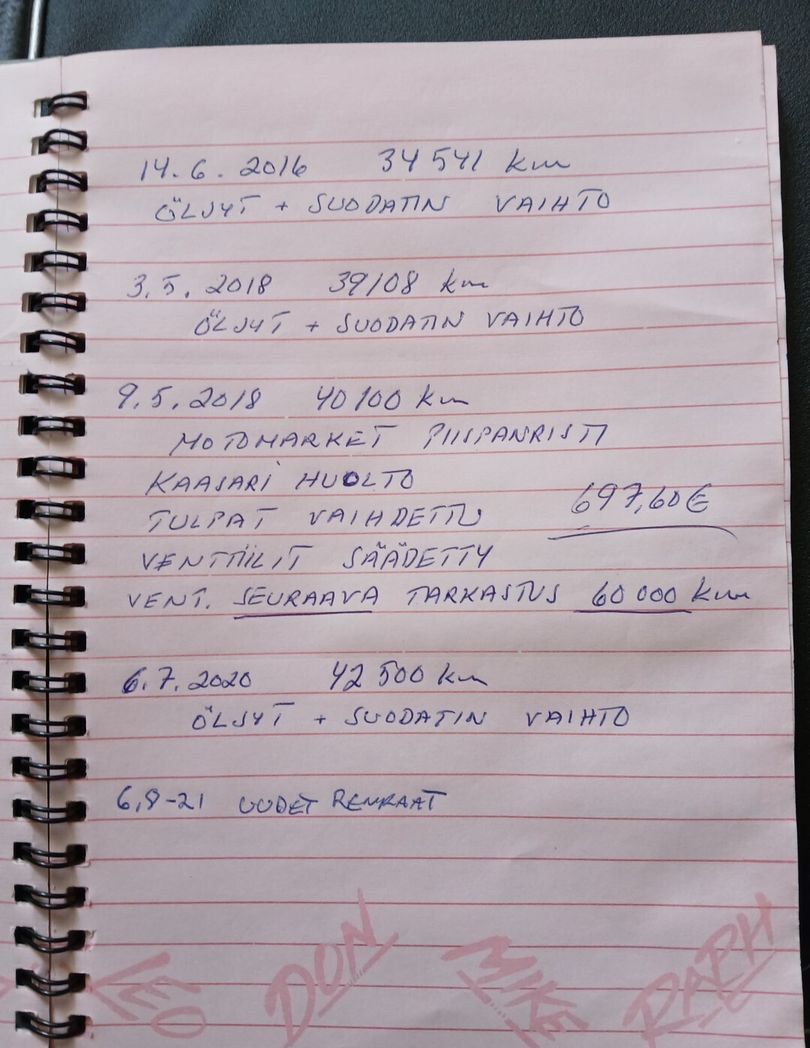 14.6.2016 34541 km
ÖLJYT + SUODATIN VAIHTO
3.5.2018 39108 km
ÖLJYT + SUODATIN VAIHTO
9.5.2018 40100 km
MOTOMARKET PIISPANRISTI
KAASARI HUOLTO
TULPAT VAIHDETTU 697,60€
VENTTIILIT SÄÄDETTY
VENT. SEURAAVA TARKASTUS 60 000 km
6.7.2020 42 500 km
ÖLJYT + SUODATIN VAIHTO
6,8-21 UUDET RENKAAT
LEO DON MIKE RAPH